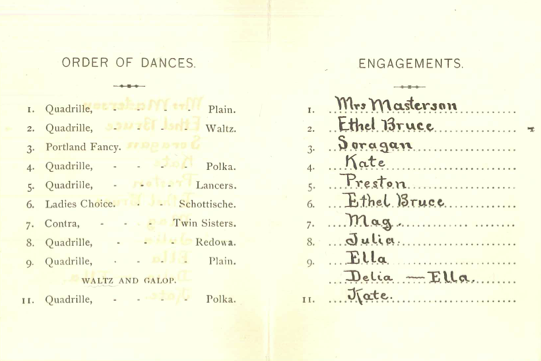 ORDER OF DANCES.
1. Quadrille, - - - - Plain.
2. Quadrille, - - - - Waltz.
3. Portland Fancy.
4. Quadrille, - - - - Polka.
5. Quadrille, - - - Lancers.
6. Ladies Choice. - - Schottische.
7. Contra, - - - Twin Sisters.
8. Quadrille, - - - Redowa.
9. Quadrille, - - - - Plain.
WALTZ AND GALOP.
11. Quadrille, - - - - Polka.
ENGAGEMENTS.
1. Mrs Masterson
2. Ethel Bruce
3. Soragan
4. Kate
5. Preston
6. Ethel Bruce
7. Mag
8. Julia
9. Ella
Delia — Ella
11. Kate